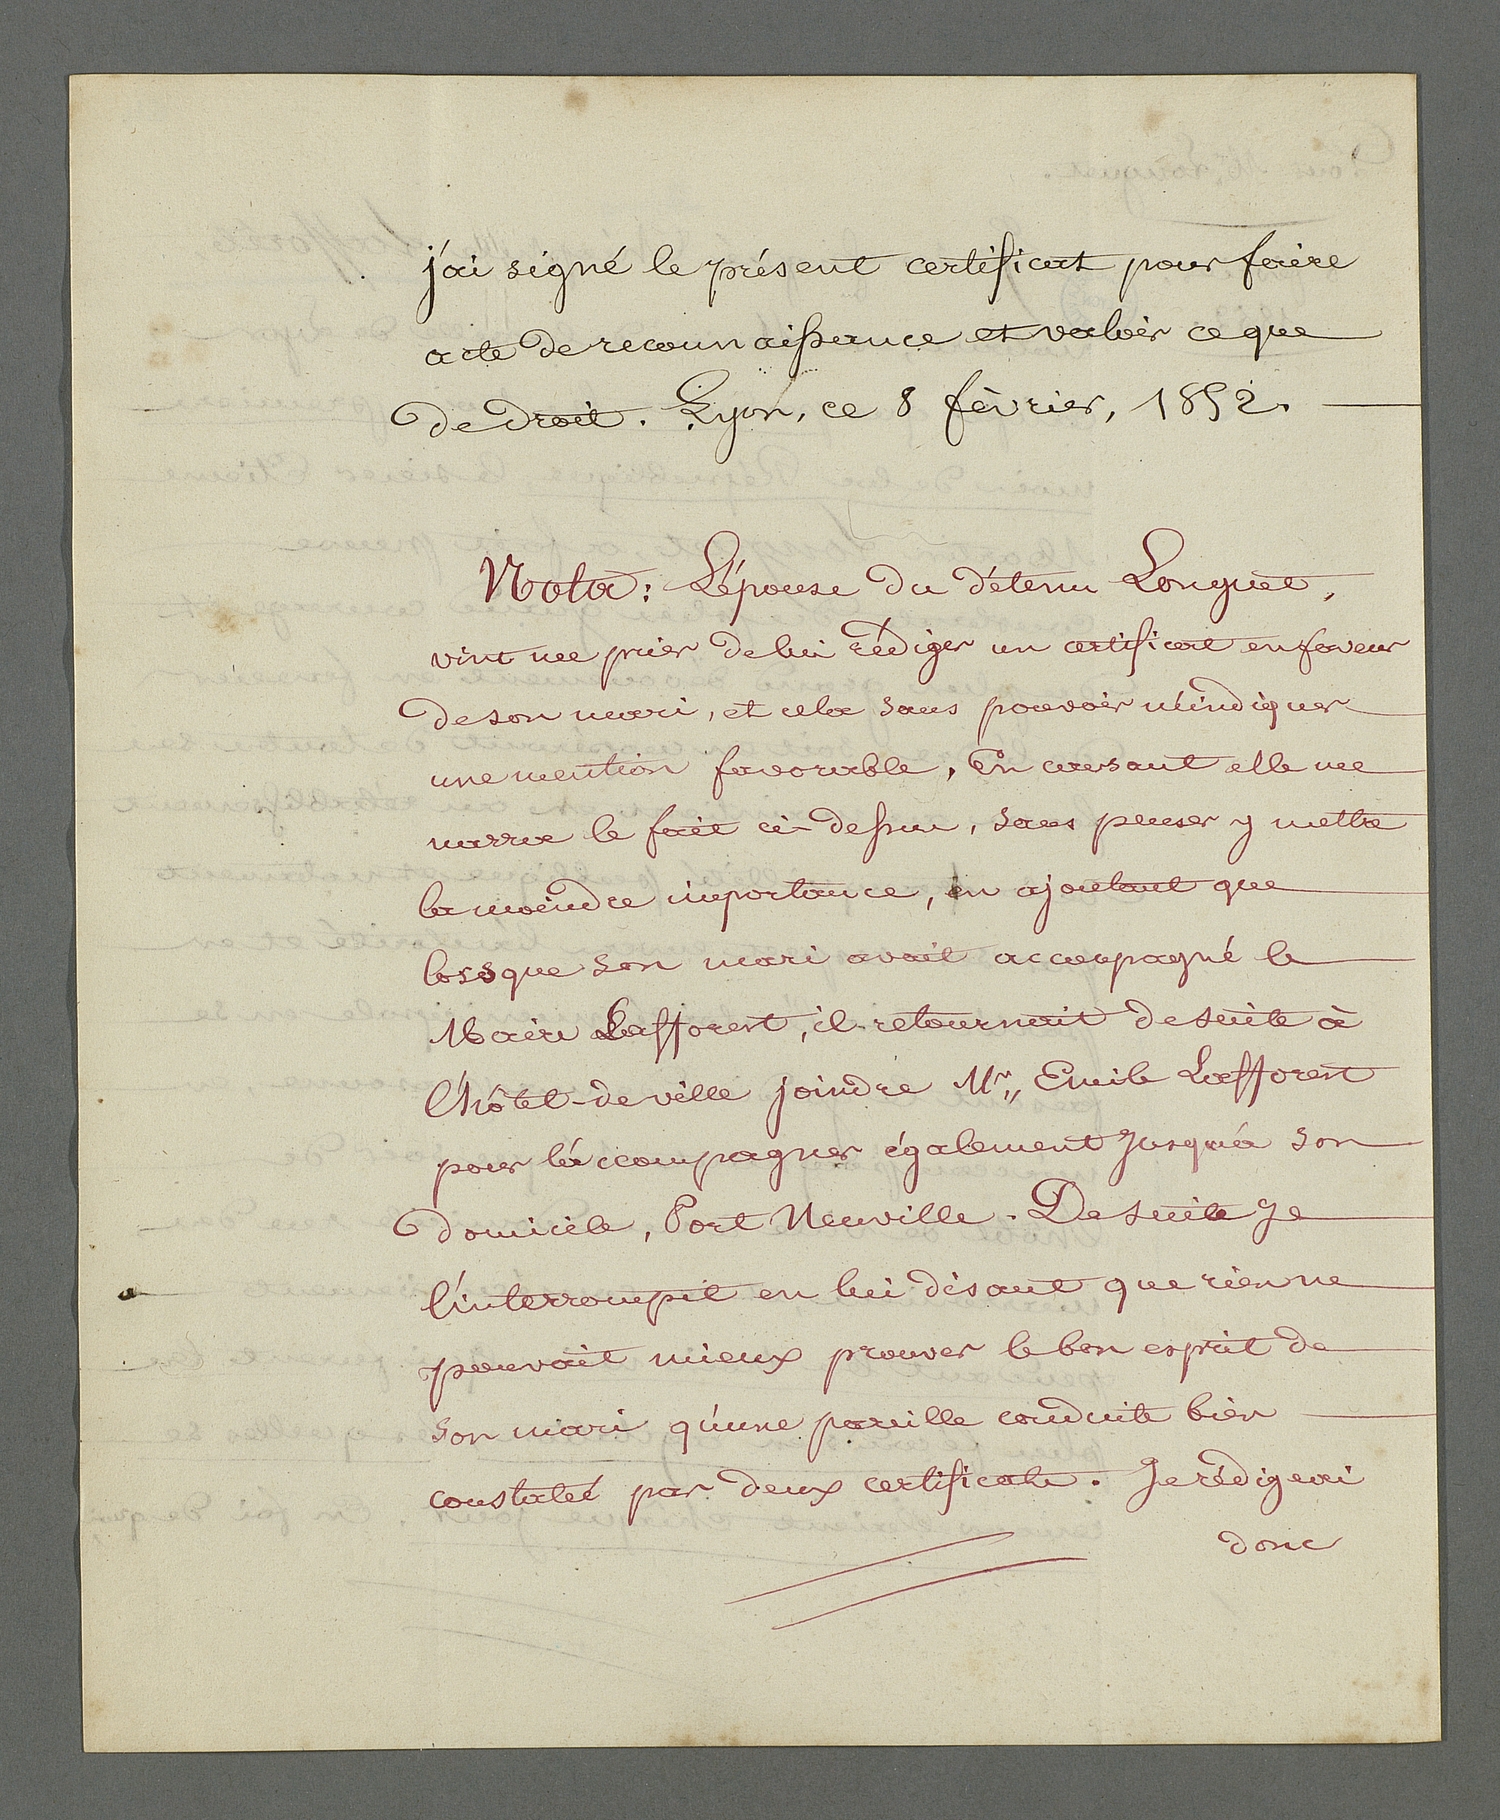 j'ai signé le présent certificat pour faire
acte de reconnaissance et valoir ce que
de droit. Lyon, ce 8 février, 1852.
Nota: L'épouse du détenu Longuet,
vint me prier de lui rédiger un certificat en faveur
de son mari, et cela sans pouvoir m'indiquer
une mention favorable. En causant elle me
narra le fait ci-dessus, sans penser y mettre
la moindre importance, en ajoutant que
lorsque son mari avait accompagné le
Maire Lafforest, il retournait de suite à
l'hôtel-de ville joindre Mr,, Emile Lafforest
pour l'accompagner également jusqu'à son
domicile, Port Neuville. De suite je
l'interrompit en lui disant que rien ne
pouvait mieux prouver le bon esprit de
son mari qu'une pareille conduite bien
constatée par deux certificats. Je rédigeai
donc